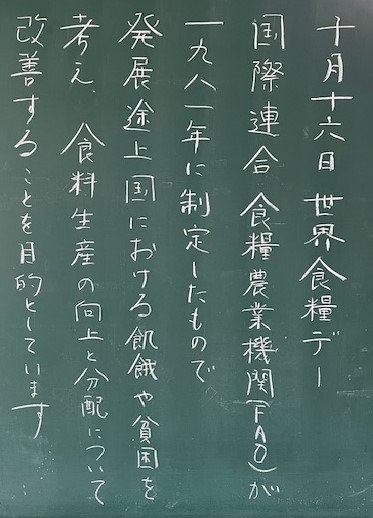 十月十六日 世界食糧デー
国際連合 食糧農業機関(FAO)が
一九八一年に制定したもので
発展途上国における飢餓や貧困を
考え、食料生産の向上と分配について
改善することを目的としています